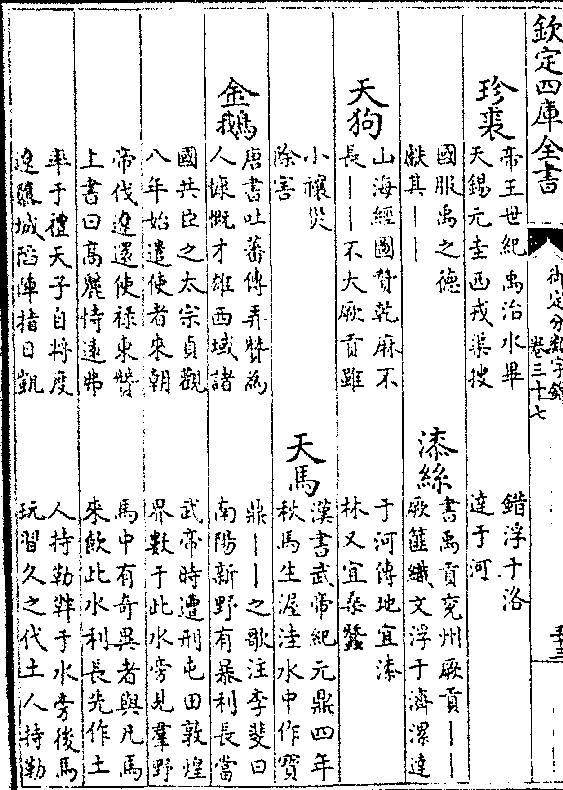 欽定四庫全書
御定分類字錦
卷三十七
珍裘
帝王世紀禹治水畢
天錫元圭西戎渠搜
國服禹之德
獻其｜｜
天狗
山海經圖贊乾麻不
長｜｜不大厥貢雖
小禳災
除害
金鵝
唐書吐蕃傳弄贊為
人慷慨才雄西域諸
國共臣之太宗貞觀
八年始遣使者來朝
帝伐遼還使祿東贊
上書曰高麗恃遠弗
率于禮天子自將度
遼隳城陷陣指日凱
錯浮于洛
達于河
漆絲
書禹貢兗州厥貢｜｜
厥篚織文浮于濟漯達
于河傳地宜漆
林又宜桑蠶
天馬
漢書武帝紀元鼎四年
秋馬生渥洼水中作寶
鼎｜｜之歌注李斐曰
南陽新野有暴利長當
武帝時遭刑屯田敦煌
界數于此水旁見羣野
馬中有奇異者與凡馬
來飲此水利長先作土
人持勒靽于水旁後馬
玩習久之代土人持勒